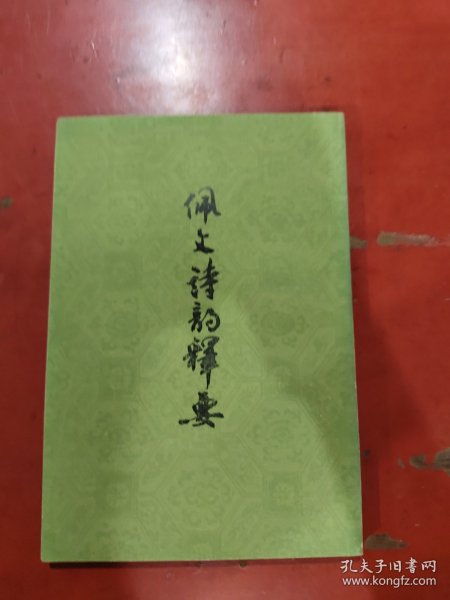 佩文诗韵释要
孔夫子旧书网
www.kongfz.com